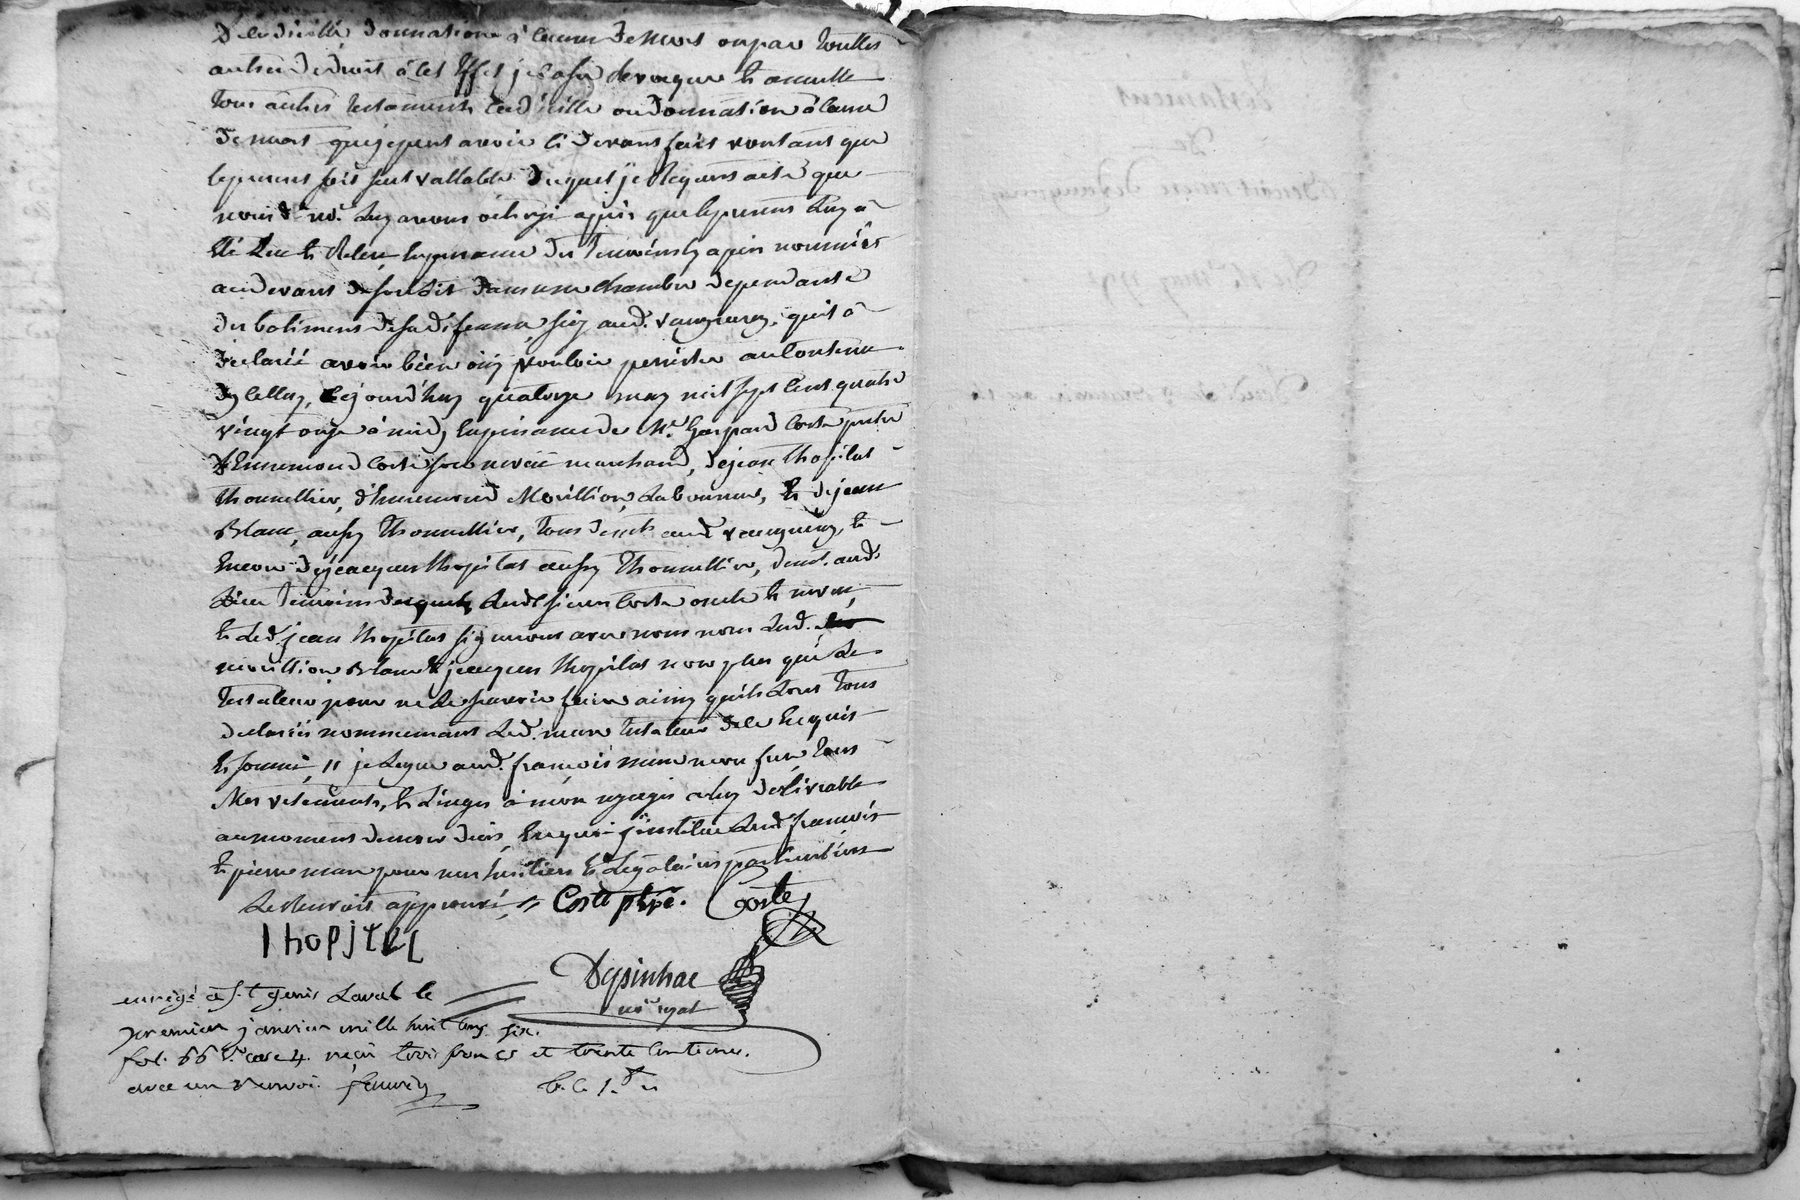 De codicille, donnation à cause de mort ou par touttes
autres de droit à cet Effet je casse revoque et annulle
tous autres testaments codicille ou donnation à cause
de mort que je peut avoir ci devant fait voulant que
le present soit seul vallable duquel je Requers acte que
nous d. no.re Luy avons octroyé après que le present Luy a
été Lu et Relu en presence des temoins cy apres nommés
audevant de son Lit dans une chambre dependante
des batiments de sad. femme sis aud. vaugneray, qu'il a
déclaré avoir bien oüy vouloir persister au Contenu
D'y celluy, Cejourd'huy quatorze may mil sept cent quatre
vingt onze à midy En presence de M.re Gaspard Coste pretre
d'Ennemond Coste son neveu marchand, de jean Lhopital
thonnellier, d'Ennemond Mouillion, Laboureur, Et de jean
Blanc, aussy thonnellier, tous dem.ts aud. vaugneray, et
Encore de jeacques Lhopital aussy Thonnellier, dem.t aud.
Lieu temoins desquels Lesd. sieurs Coste oncle et neveu,
et Led. jean Lhopital signeront avec nous non Lesd.
mouillion Blanc et jeacques Lhopital non plus que Le
testateur pour ne Le scavoir faire ainsy qu'ils L'ont tous
declaré nommement Led. mure testateur de ce Enquis
Et sommé, // je Legue aud. françois mure mon frere tous
Mes vetements, et Linges à mon usage a luy deslivrable
au moment de mon decès, En quoi j'institue Lesd. françois
et pierre mure pour mes heritiers Et Legataires particuliers
Le Renvois approuvé // Coste ptre. Coste
Lhopital
Depinhac
no.re royal
enregé à S.t genis Laval le
premier janvier mille huit cens six.
fol. 66 v.o case 4. reçu trois francs et trente centimes.
avec un renvoi.